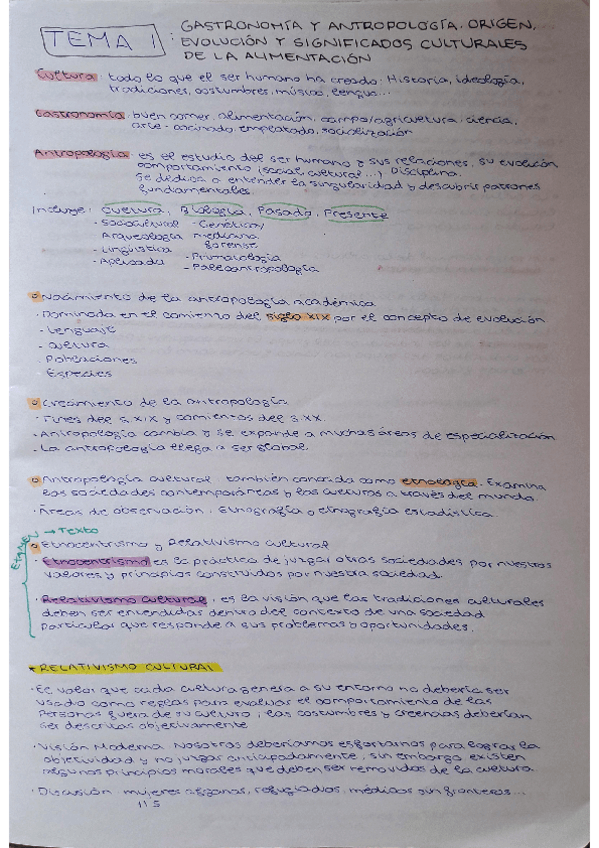 TEMA 1: GASTRONOMÍA Y ANTROPOLOGÍA. ORIGEN,
EVOLUCIÓN Y SIGNIFICADOS CULTURALES
DE LA ALIMENTACIÓN
Cultura: todo lo que el ser humano ha creado. Historia, ideología,
tradiciones, costumbres, música, lengua...
Gastronomía: buen comer, alimentación, campo/agricultura, ciencia,
arte - cocinado, emplatado, socialización
Antropología: es el estudio del ser humano y sus relaciones, su evolución
comportamiento (social, cultural...) Disciplina.
Se dedica a entender la singularidad y descubrir patrones
fundamentales.
Incluye: Cultura, Biología, Pasado, Presente
- Sociocultural - Genética/
Arqueología medicina
- Lingüística forense
- Aplicada - Primatología
- Paleoantropología
Nacimiento de la antropología académica
· Dominada en el comienzo del siglo XIX por el concepto de evolución
- Lenguaje
- Cultura
· Poblaciones
· Especies
Crecimiento de la antropología
· Fines del s. XIX y comienzos del s. XX.
· Antropología cambia y se expande a muchas áreas de especialización
· La antropología llega a ser global.
Antropología cultural también conocida como etnología. Examina
las sociedades contemporáneas y las culturas a través del mundo.
· Áreas de observación: Etnografía o etnografía estadística.
EXAMEN → Texto
Etnocentrismo y Relativismo cultural
· Etnocentrismo es la práctica de juzgar otras sociedades por nuestros
valores y principios construidos por nuestra sociedad.
· Relativismo cultural, es la visión que las tradiciones culturales
deben ser entendidas dentro del contexto de una sociedad
particular que responde a sus problemas y oportunidades.
* RELATIVISMO CULTURAL
· El valor que cada cultura genera a su entorno no debería ser
usado como reglas para evaluar el comportamiento de las
personas fuera de su cultura, las costumbres y creencias deberían
ser descritas objetivamente
· Visión Moderna. Nosotros deberíamos esforzarnos para lograr la
objetividad y no juzgar anticipadamente, sin embargo existen
algunos principios morales que deben ser removidos de la cultura.
· Discusión: mujeres afganas, refugiados, médicos sin fronteras...
11 S